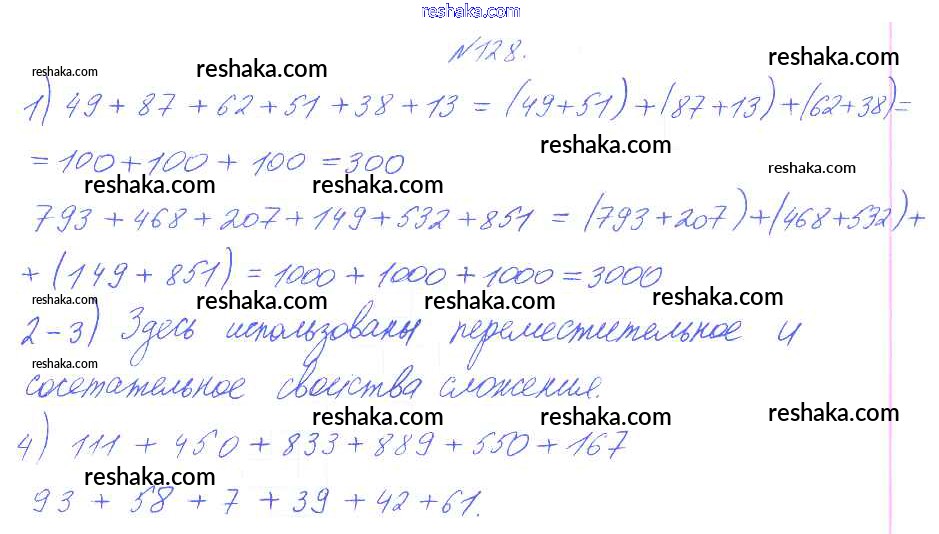 reshaka.com
№128.
reshaka.com
reshaka.com
reshaka.com
1) 49 + 87 + 62 + 51 + 38 + 13 = (49+51) + (87+13) + (62+38) =
reshaka.com
= 100 + 100 + 100 = 300
reshaka.com
reshaka.com
reshaka.com
793 + 468 + 207 + 149 + 532 + 851 = (793+207) + (468+532) +
+ (149 + 851) = 1000 + 1000 + 1000 = 3000
reshaka.com
reshaka.com
reshaka.com
reshaka.com
2-3) Здесь использованы переместительное и
reshaka.com
сочетательное свойства сложения.
reshaka.com
reshaka.com
reshaka.com
4) 111 + 450 + 833 + 889 + 550 + 167
reshaka.com
93 + 58 + 7 + 39 + 42 + 61.